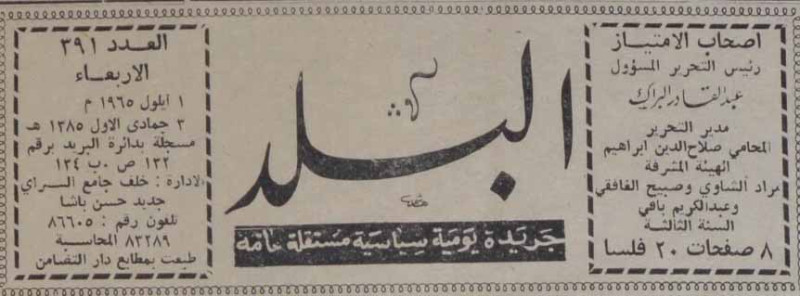 اصحاب الامتياز
رئيس التحرير المسؤول
عبدالقادر البراك
مدير التحرير
المحامي صلاح الدين ابراهيم
الهيئة المشرفة
مراد الشاوي وصبيح الغافقي
وعبدالكريم باقي
السنة الثالثة
٨ صفحات ٢٠ فلسا
البلد
جريدة يومية سياسية مستقلة عامة
العدد ٣٩١
الاربعاء
١ ايلول ١٩٦٥ م
٣ جمادى الاول ١٣٨٥ هـ
مسجلة بدائرة البريد برقم
١٣٢ ص ٠ب ١٣٤
الادارة : خلف جامع السراي
جديد حسن باشا
تلفون رقم : ٨٦٦٠٥
٨٣٢٨٩ المحاسبة
طبعت بمطابع دار التضامن